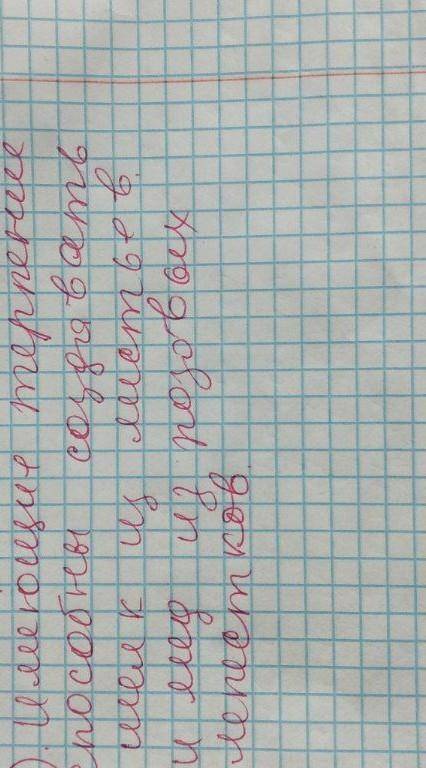 ). Имеющие терпение
способны создавать
шелк из листьев
и мед из розовых
лепестков.